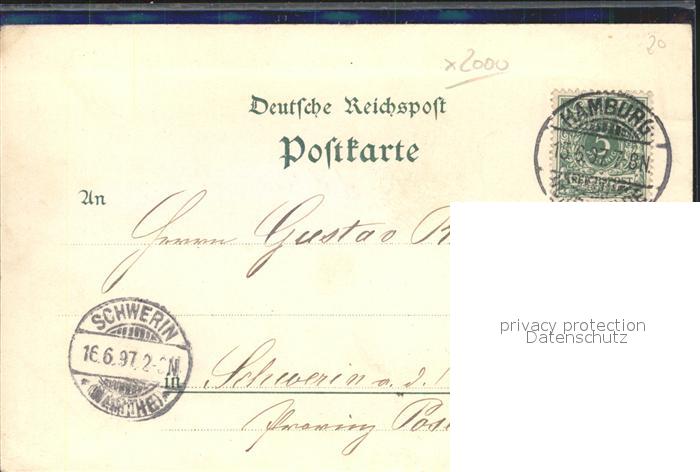 20
x2000
Deutsche Reichspost
Postkarte
HAMBURG
5
An
Herrn Gustav
privacy protection
Datenschutz
SCHWERIN
16.6.97. 2-3N.
(WARTHE)
in Schwerin a. d.
Provinz Pose